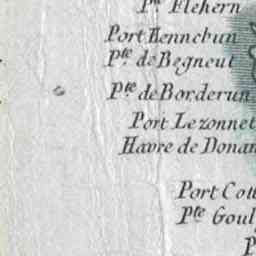 Pte. Flehern
Port Kennebun
Pte. de Begneul
Pte. de Borderun
Port Lezonnet
Havre de Donan
Port Coll
Pte Goul
P